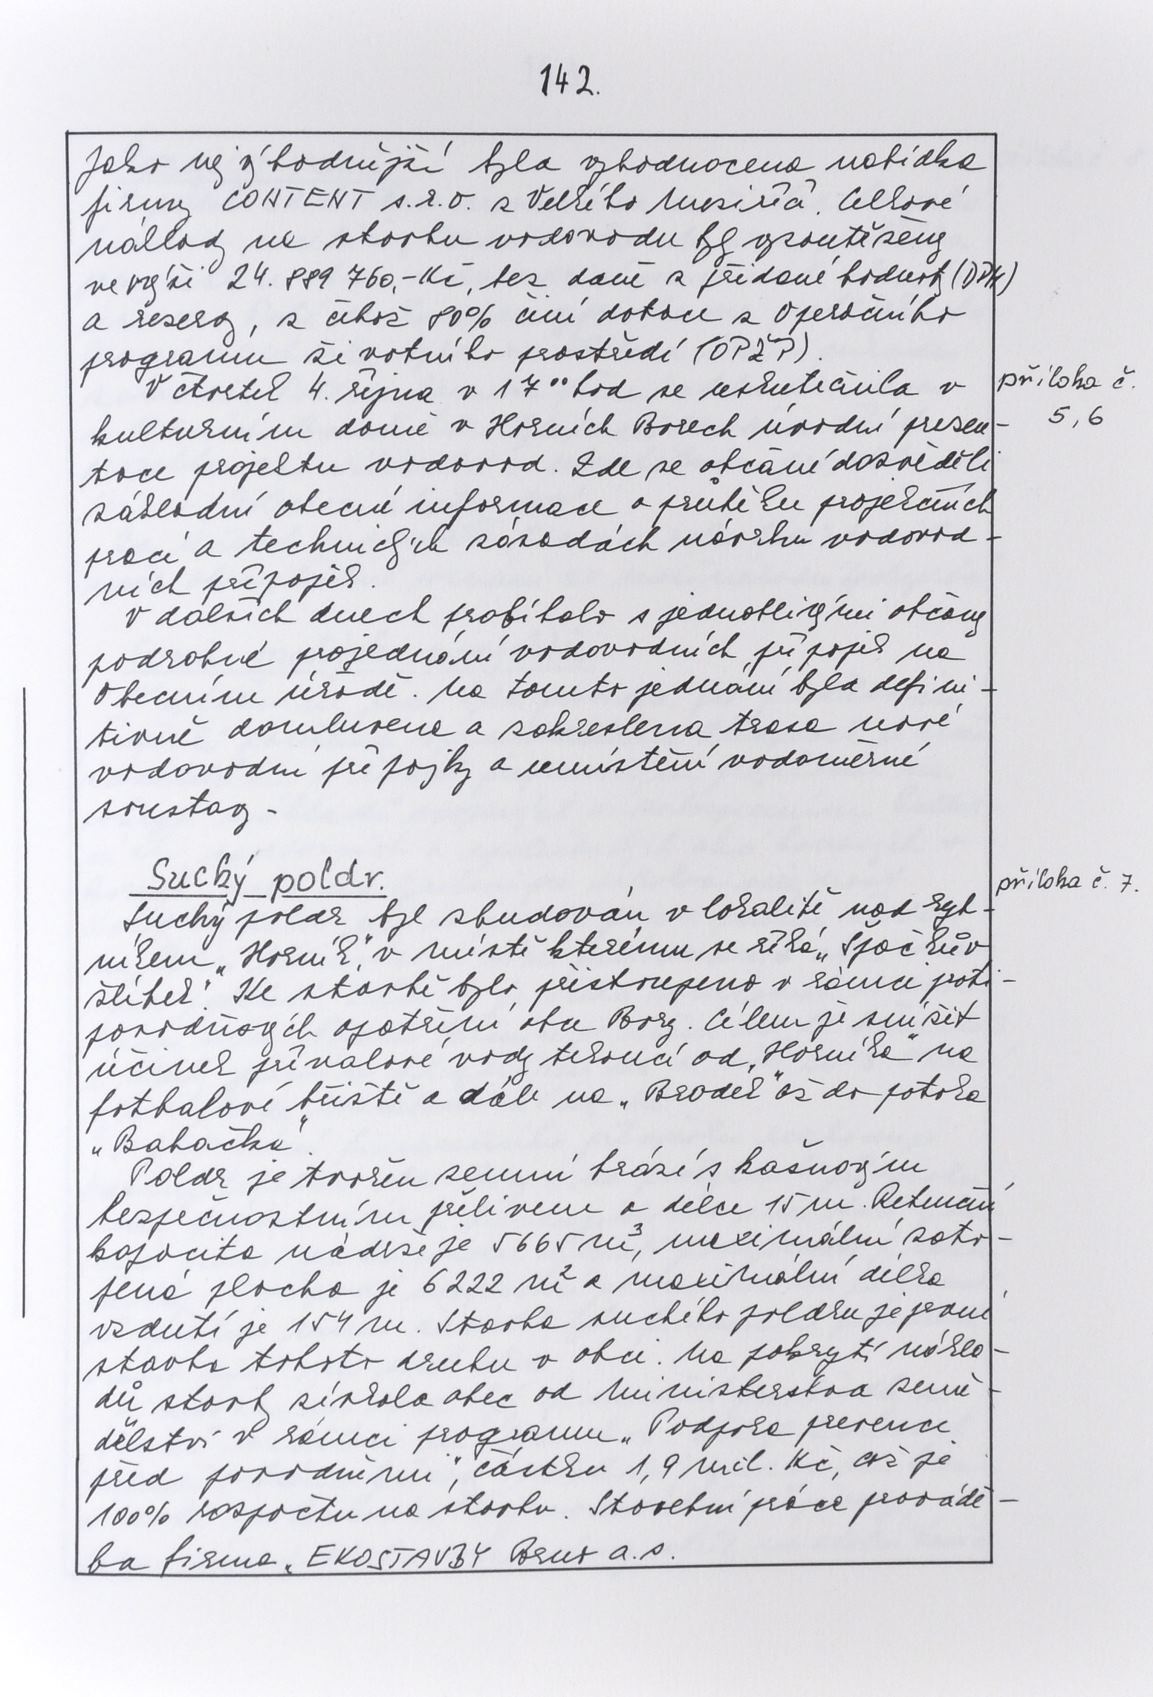 142.
Jako nejvýhodnější byla vyhodnocena nabídka
firmy CONTENT s.r.o. z Velkého Meziříčí. Celkové
náklady na stavbu vodovodu byly vysoutěženy
ve výši 24.889 760,-Kč, bez daně z přidané hodnoty (DPH)
a rezervy, z čehož 80% činí dotace z Operačního
programu životního prostředí (OPŽP).
V čtvrtek 4. října v 17°° hod se uskutečnila v
příloha č.
5,6
kulturním domě v Horních Borech úvodní prezen-
tace projektu vodovod. Zde se občané dozvěděli
základní obecné informace o průběhu projekčních
prací a technických zásadách návrhu vodovod-
ních přípojek.
V dalších dnech probíhalo s jednotlivými občany
podrobné projednání vodovodních přípojek na
Obecním úřadě. Na tomto jednání byla defini-
tivně domluvena a zakreslena trasa nové
vodovodní přípojky a umístění vodoměrné
soustavy.
Suchý poldr.
příloha č. 7.
Suchý poldr byl zbudován v lokalitě nad ryb-
níkem „Horník", v místě kterému se říká „Špačkův
žlíbek". Ke stavbě bylo přistoupeno v rámci proti-
povodňových opatření obce Bory. Cílem je snížit
účinek přívalové vody tekoucí od „Horníka" na
fotbalové hřiště a dále na „Brodek" až do potoka
„Babačka".
Poldr je tvořen zemní hrází s kašnovým
bezpečnostním přelivem o délce 15 m. Retenční
kapacita nádrže je 5665 m³, maximální zato-
pená plocha je 6222 m² a maximální délka
vzdutí je 154 m. Stavba suchého poldru je první
stavba tohoto druhu v obci. Na pokrytí nákla-
dů stavby získala obec od Ministerstva země-
dělství v rámci programu „Podpora prevence
před povodněmi", částku 1,9 mil. Kč, což je
100% rozpočtu na stavbu. Stavební práce provádě-
la firma „EKOSTAVBY Brno a.s.